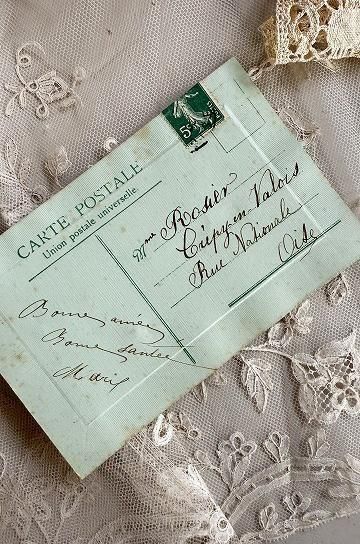 CARTE POSTALE
Union postale universelle.
5c
Mme Rosier
Crépy en Valois
Rue Nationale
Oise
Bonne année
Bonne santée
Marie